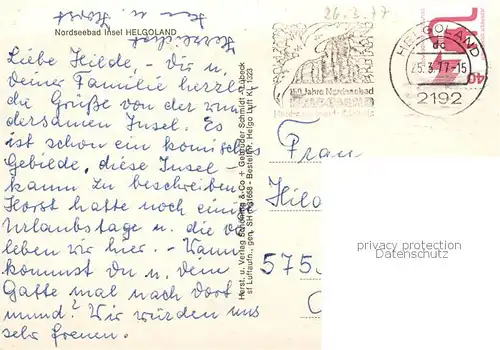 Herzlichst
Horst
Nordseebad Insel HELGOLAND
Liebe Hilde, Dir u.
Deiner Familie herzl.
die Grüße von der wun
dersamen Insel. Es
ist schon ein komisches
Gebilde, diese Insel -
kaum zu beschreiben
Horst hatte noch einige
Urlaubstage u. die ver
leben wir hier. - Wann
kommst Du u. dem
Gatte mal nach Dort
mund? Wir würden uns
sehr freuen.
Horst. u. Verlag Schöning & Co + Gebrüder Schmidt
Lübeck
Bestell-Nr. Helgo Luft KL 1323
26.3.77
150 Jahre Nordseebad
HELGOLAND
dc
25.3.77-15
2192
40
Frau
Hild
575
privacy protection
Datenschutz